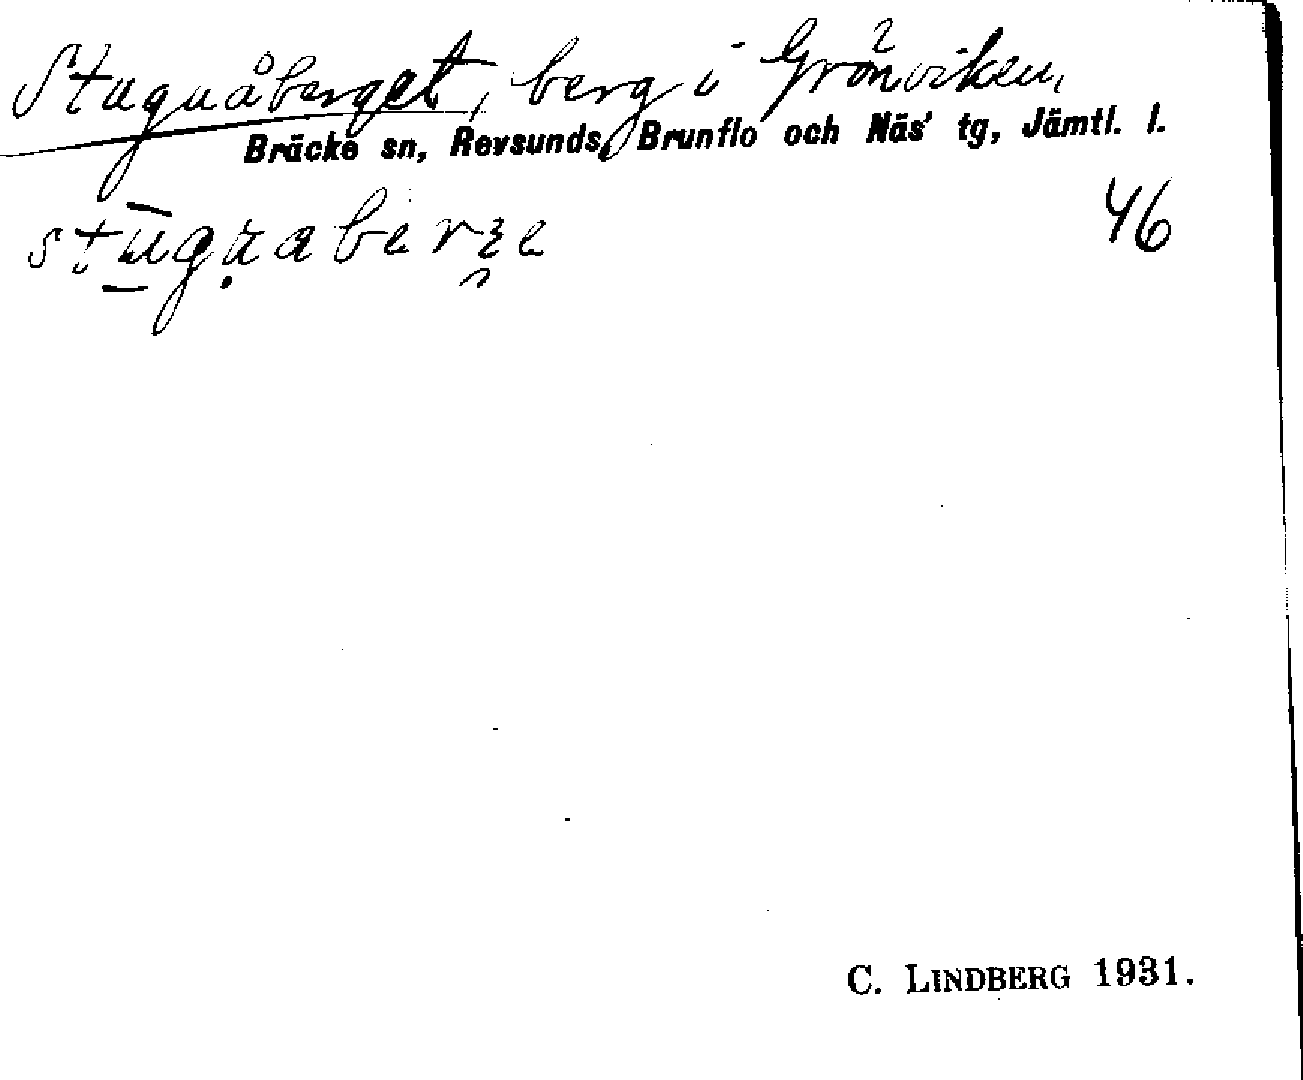 Stugnåberget, berg i Grönviken,
Bräcke sn, Revsunds, Brunflo och Näs' tg, Jämtl. l.
46
C. LINDBERG 1931.